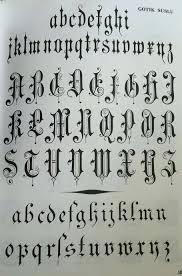 GOTİK SÜSLÜ
abcdefghi
jklmnopqrstuvwxyz
ABCDEFGHIJ
KLMNOPQR
STUVWXYZ
abcdefghijklmn
opqrſstuvwxyz